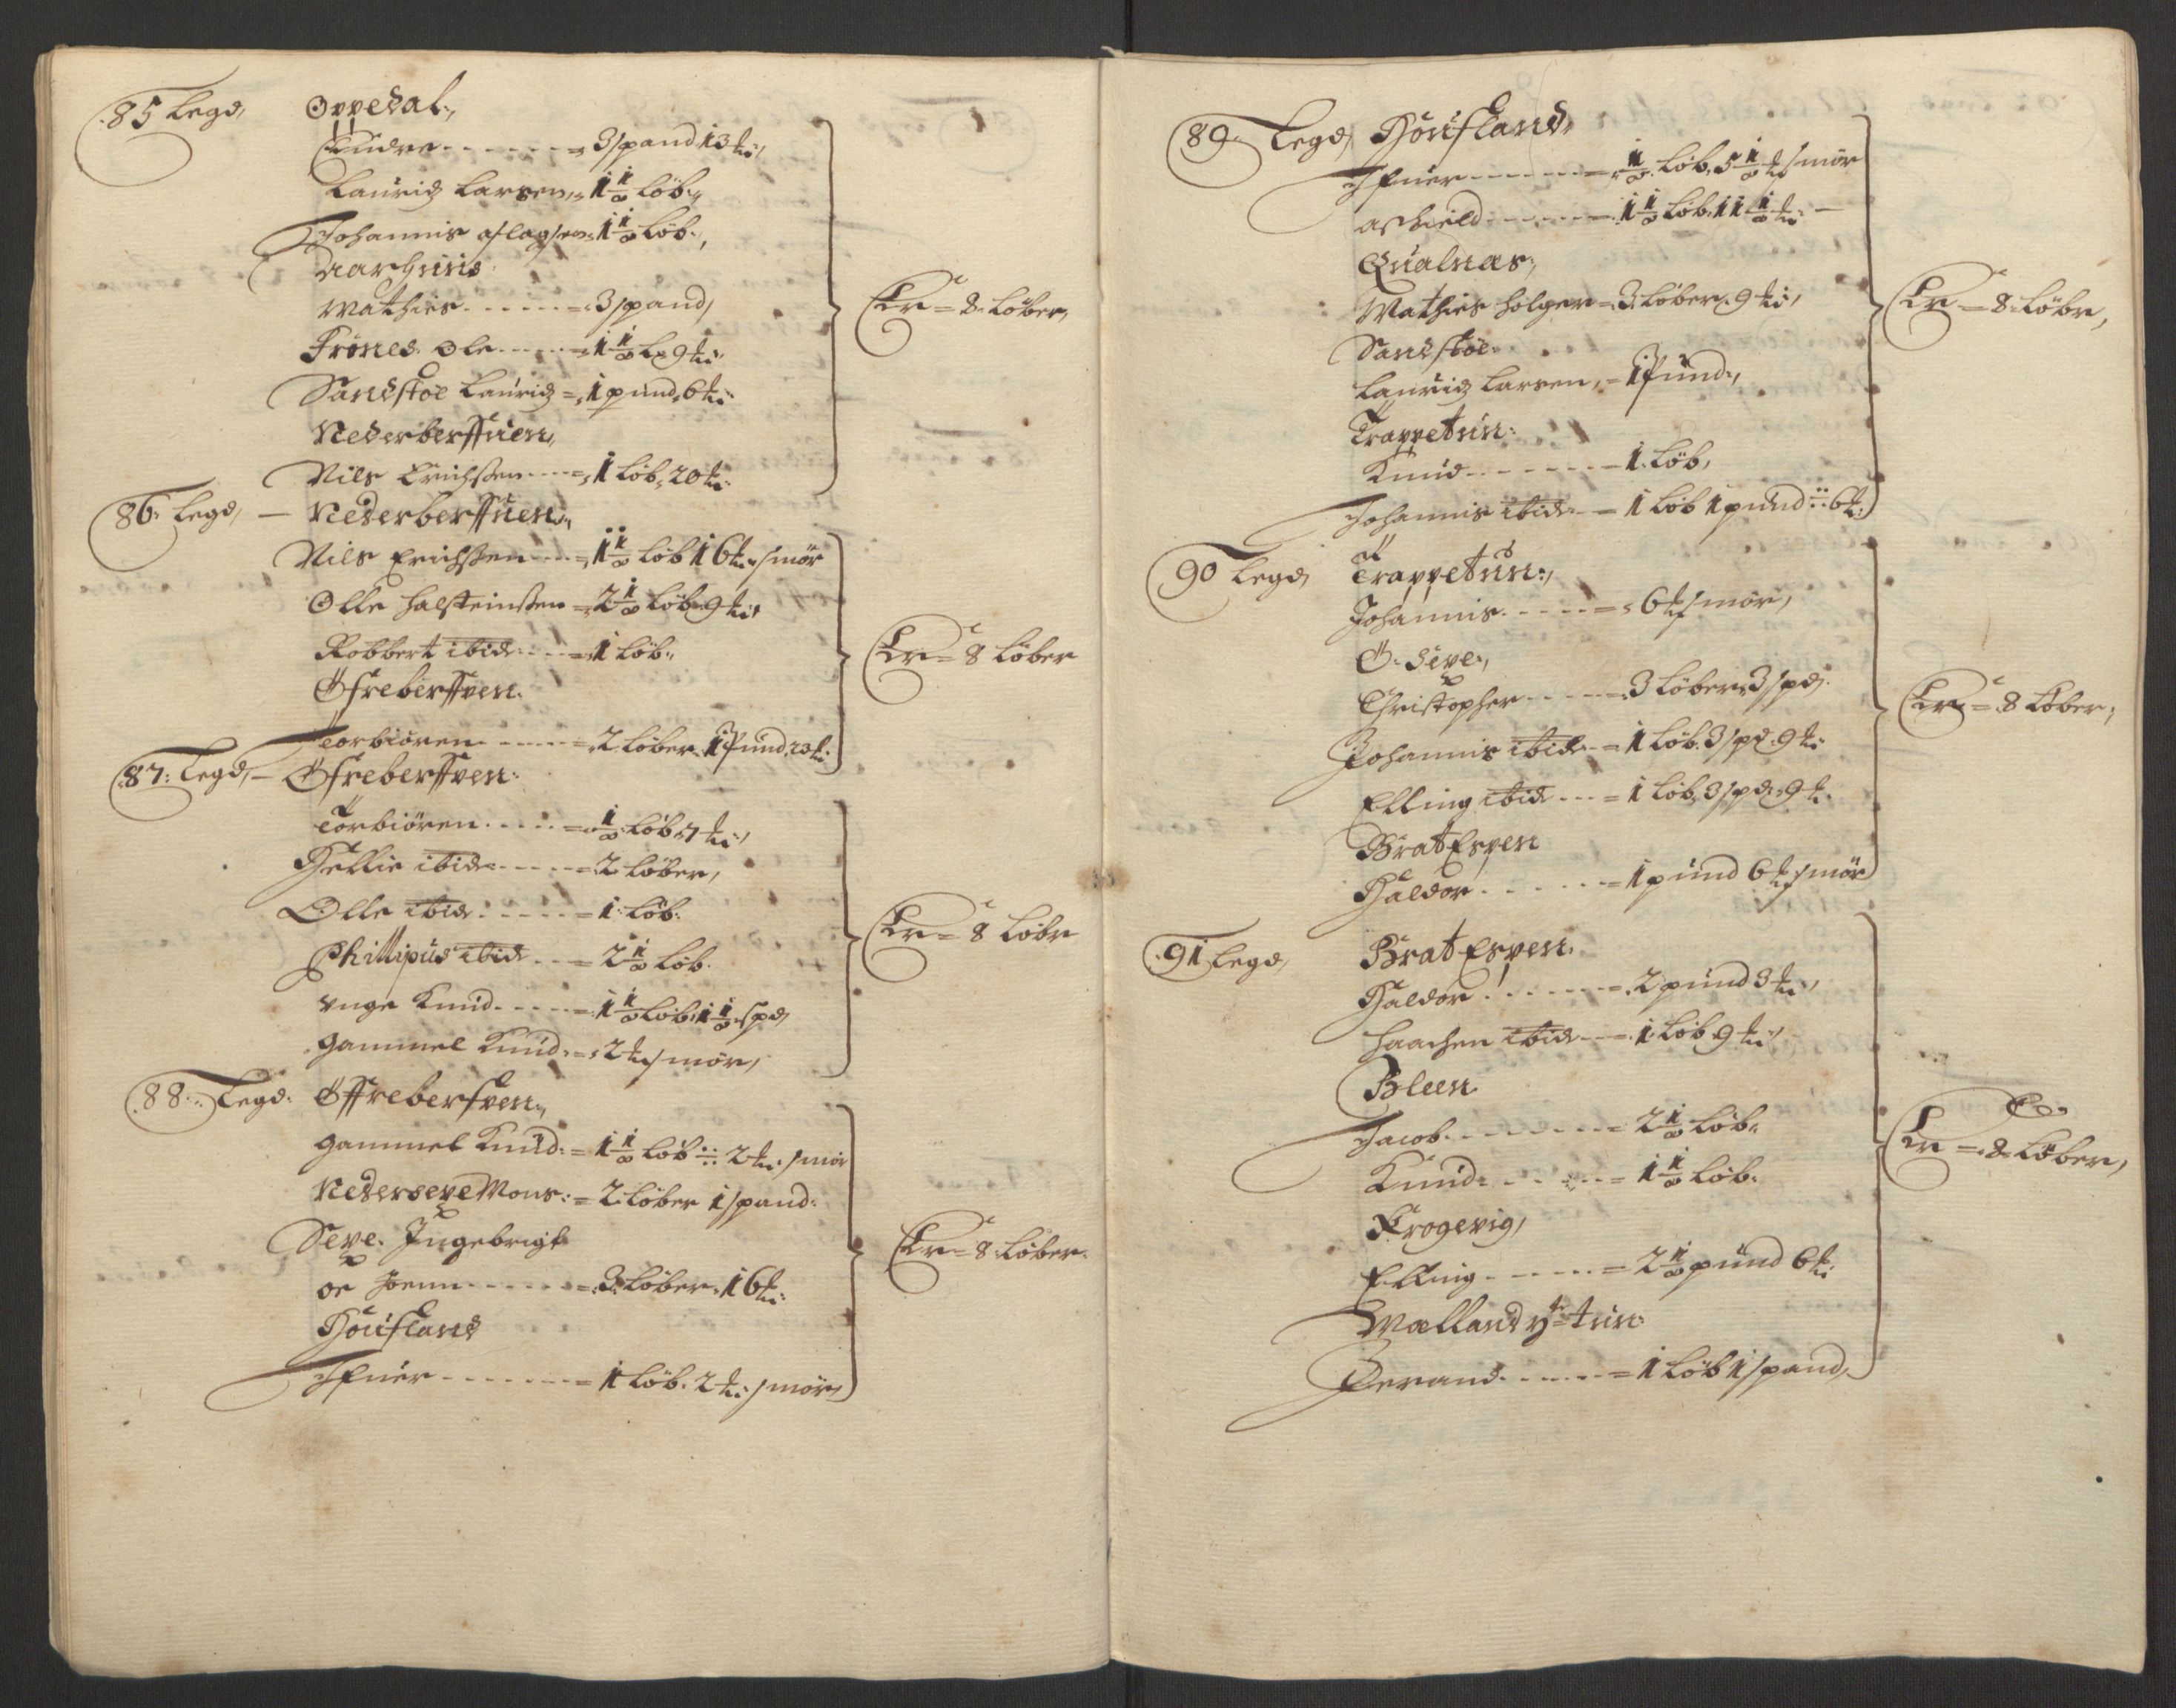 85 Legd, Oppedal.,
Endre - - - - - - = 3 spand 13 ₺:,
Lauridz Larsen,= 1½ Løb:,
Johannis Aslagsen= 1½ Løb.,
Aarhuus
Mathies - - - - - = 3 spand,
Frønes. Ole - - - - = 1½ L. 9 ₺:
Sandstøe Lauridz = 1 pund, 6 ₺:
Nederberffuen,
Nils Erichssen - - - = 1 Løb, 20 ₺:
Er = 8. Løber,
86. Legd, — Nederberffuen,
Nils Erichssen - - - = 1½ Løb 16 ₺: smør
Olle Halsteinssen = 2½ Løb 9 ₺:
Robbert ibid: - - - = 1 Løb.
Øfreberffven.
Torbiøren - - - - - = 2 Løber 1 Pund, 23 ₺:
Er = 8 Løber
87: Legd, — Øfreberffven:
Torbiøren - - - - = ½ Løb, 7 ₺:,
Hellie ibid: - - - - = 2 Løber,
Olle ibid: - - - - = 1: Løb:
Phillipus ibid - - = 2½ Løb.
Unge Knud - - - - = 1½ Løb, 1½ spd,
Gammel Knud: = 2 ₺: smør,
Er = 8 Løbr
88: Legd: Øffreberfven,
Gammel Knud: = 1½ Løb ÷ 2 ₺: smør
Nederseve Mons: = 2. Løber 1 spand:
Seve. Ingebrigt
oc Joenn - - - - - = 3. Løber, 16 ₺:
Houfland
Ifuer - - - - - - = 1 Løb. 2 ₺: smør,
Er = 8: Løber.
89. Legd, Houfland,
Ifuer - - - - - - = ½ Løb. 5½ ₺ smør
Askield - - - - - = 1½ Løb. 11½ ₺: —
Qualnæs,
Mathies Holger = 3. Løber. 9 ₺:,
Sandstøe.
Lauridz Larsen, = 1 Pund.,
Trappetun:
Knud - - - - - - - 1. Løb,
Johannis ibid: — 1 Løb 1 pund ÷ 6 ₺:
Er = 8: Løbr,
90 Legd, Trappetun.,
Johannis. - - - - = 6 ₺ smør,
Ø. Seve,
Christopher - - - - = 3 Løber, 3 spd.
Johannis ibid: - = 1 Løb. 3 spd. 9 ₺:
Elling ibid - - - = 1 Løb, 3 spd. 9 ₺.
Brat Espen
Haldor - - - - - = 1 pund 6 ₺: smør
Er = 8 Løber,
91 Legd, Brat Espen.
Haldor - - - - - = 2 pund 3 ₺:,
Haachen ibid - - = 1. Løb 9 ₺:,
Bleen
Jacob - - - - - - = 2½ Løb.
Knud - - - - - = 1½ Løb.
Krogevig,
Elling - - - - - = 2½ pund 6 ₺:
Wælland y=tr tun.
Perand - - - - - = 1 Løb 1 spand,
Er = 8. Løber,